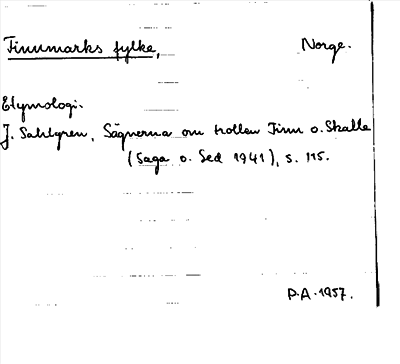 Finnmarks fylke, Norge.
Etymologi.
J. Sahlgren, Sägnerna om trollen Finn o. Skalle
(Saga o. Sed 1941), s. 115.
P.A. 1957.